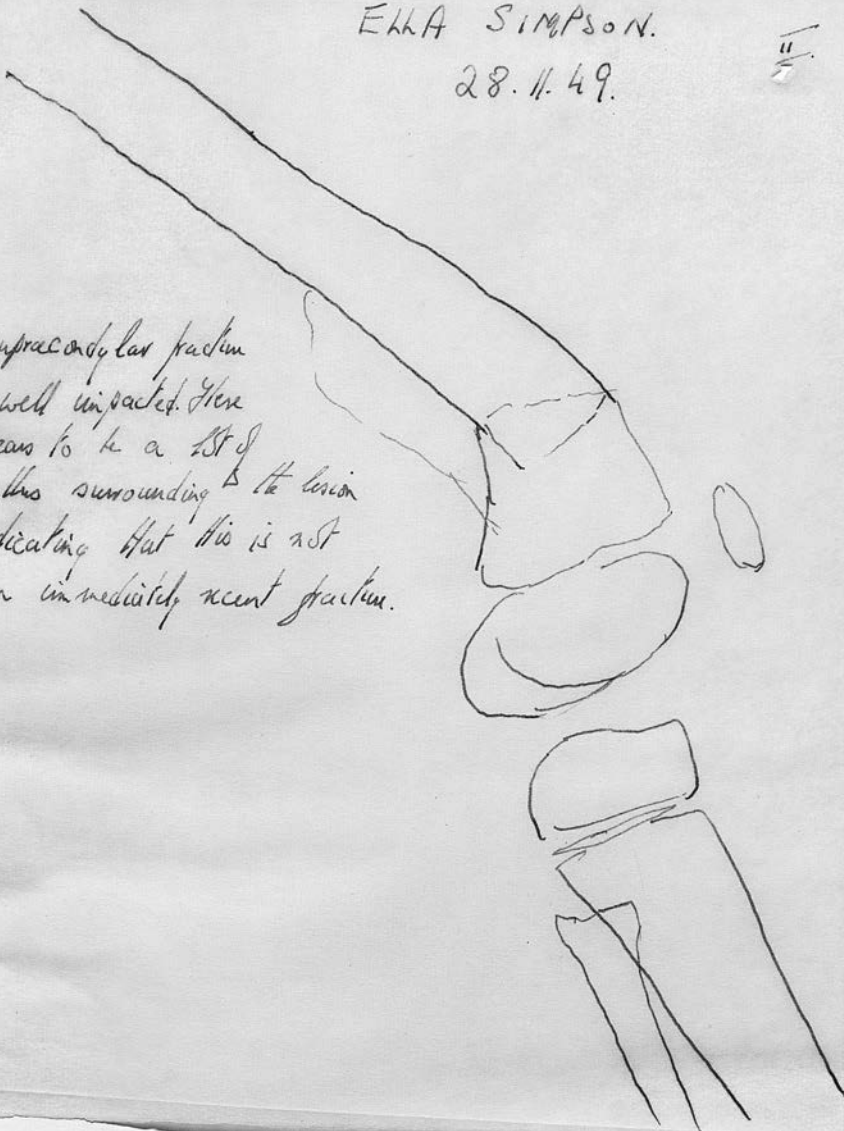 ELLA SIMPSON.
II.
28.11.49.
upracondylar fracture
well impacted. There
ears to be a lot of
llus surrounding the lesion
dicating that this is not
n immediately recent fracture.